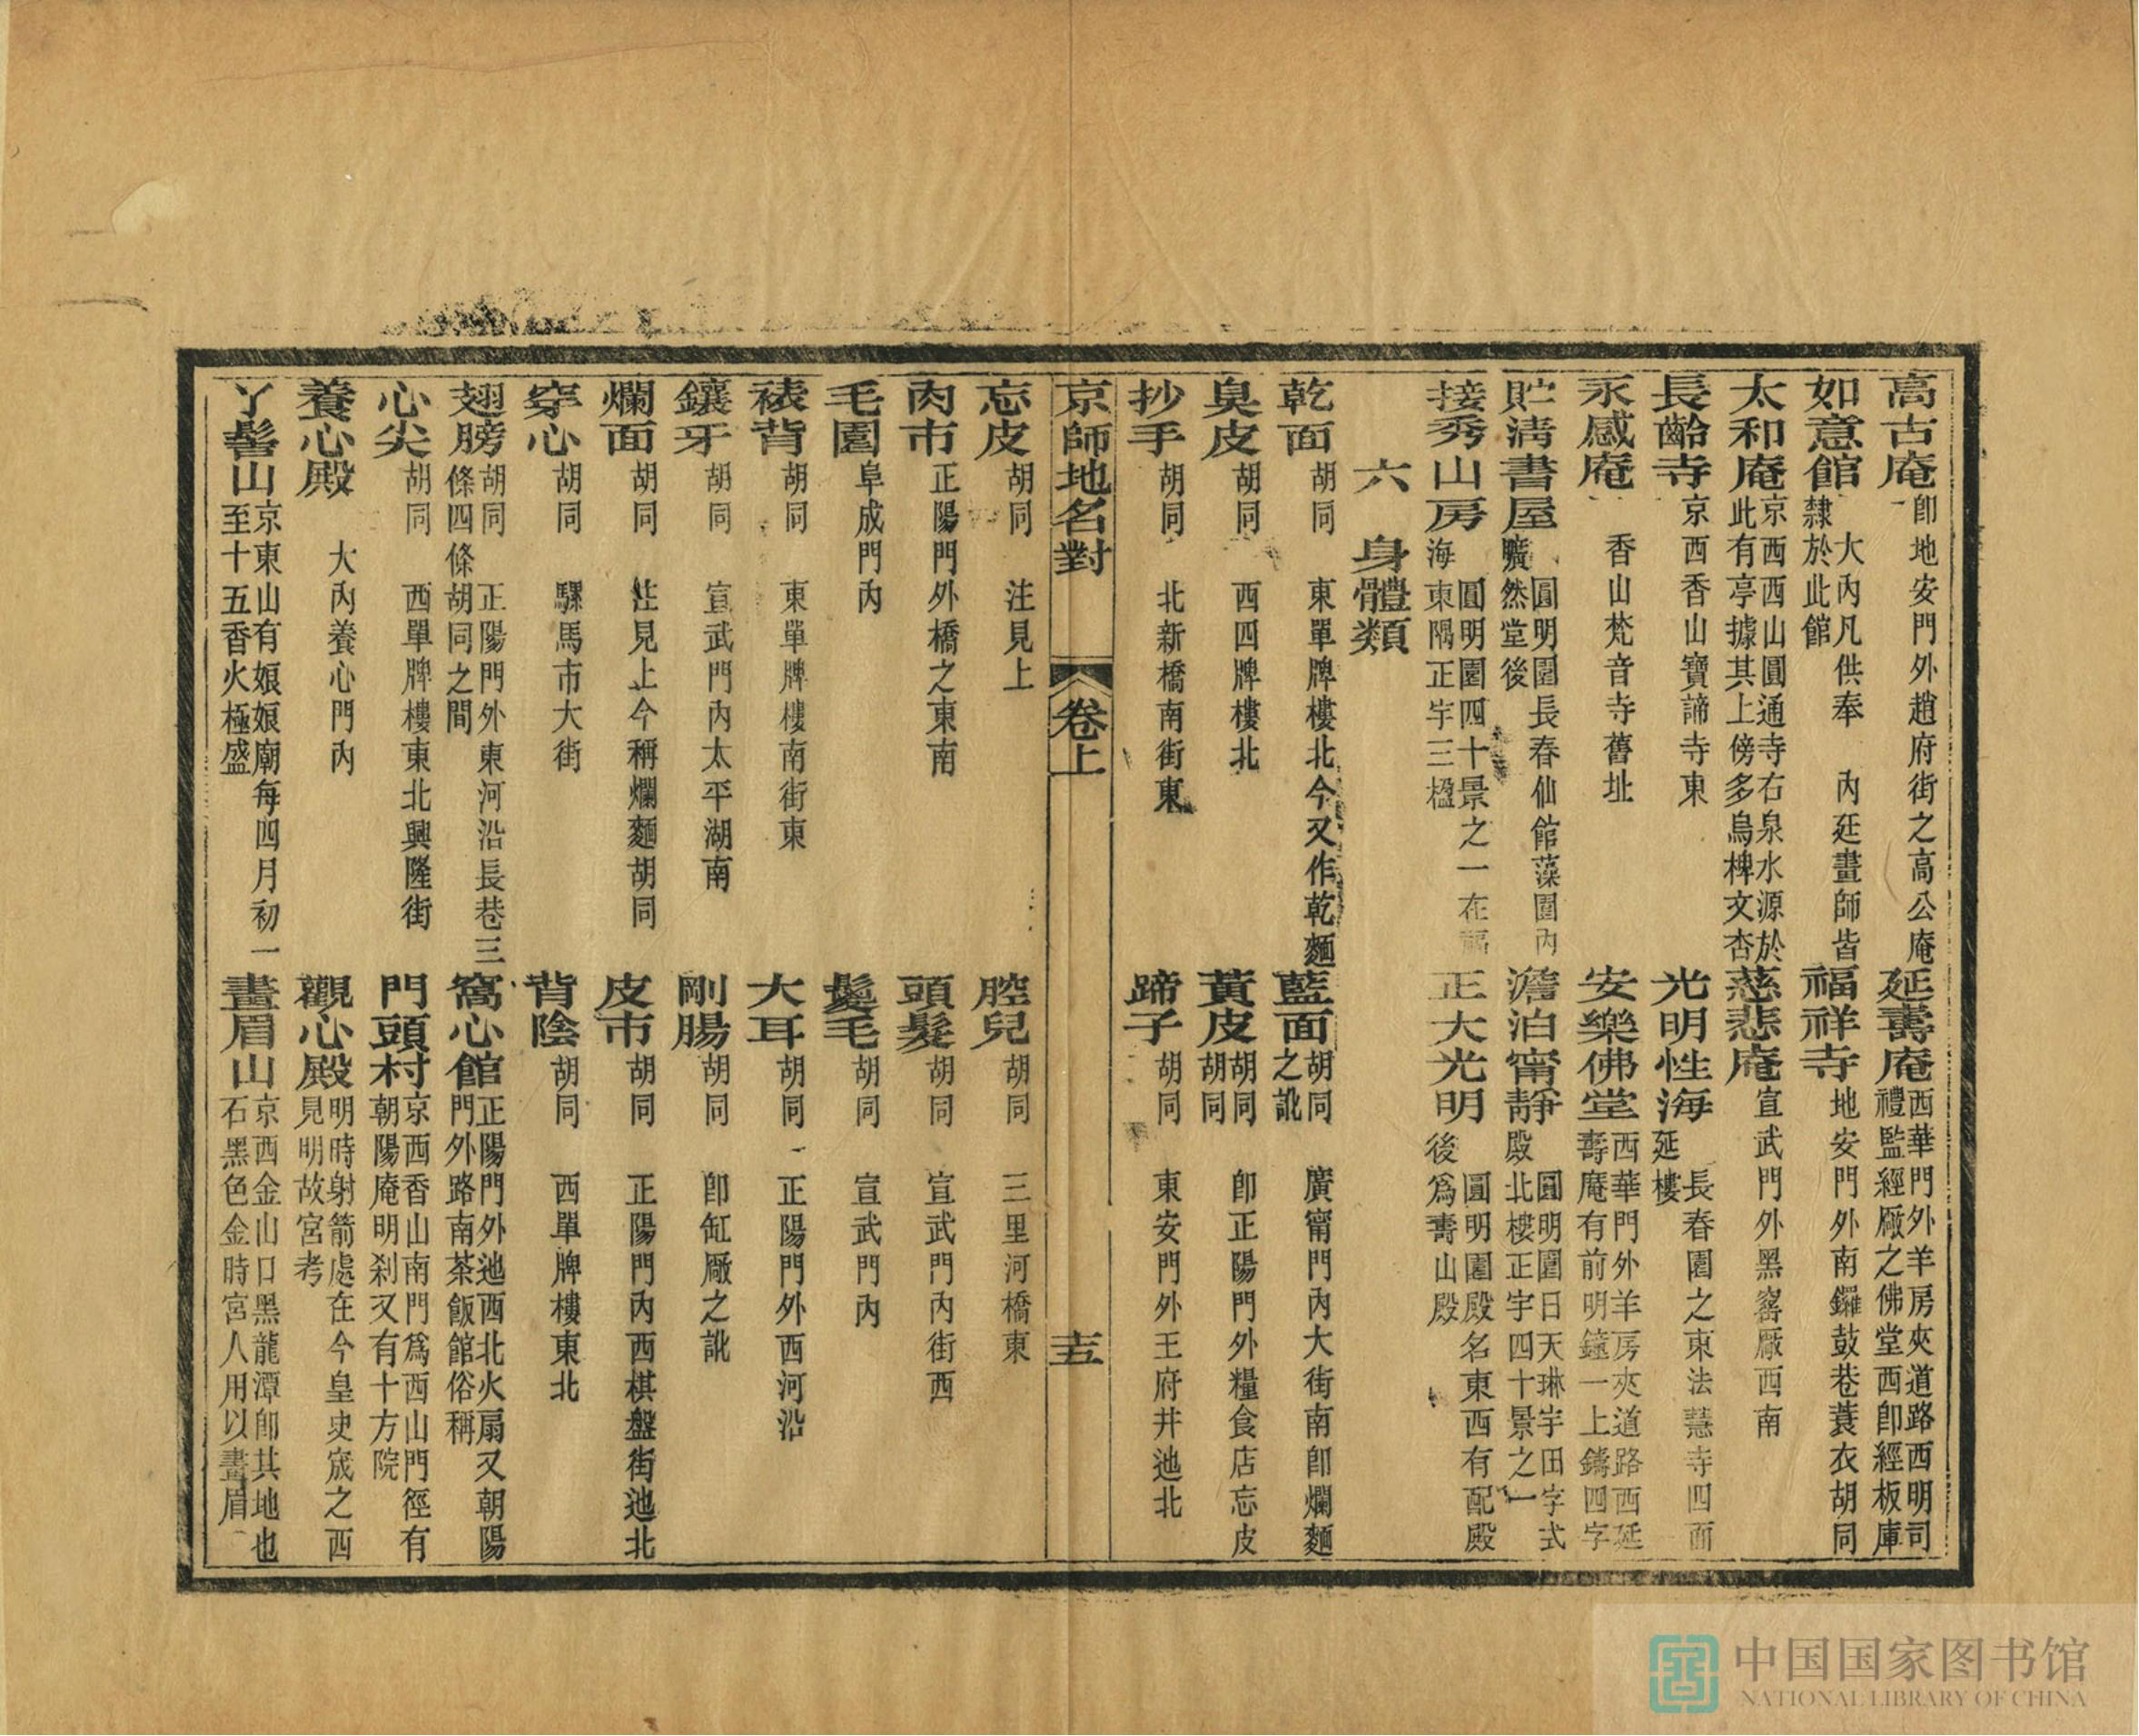 高古庵 卽地安門外趙府街之高公庵 延壽庵 西華門外羊房夾道路西明司禮監經廠之佛堂西卽經板庫
如意館 大內凡供奉 內廷畫師皆隸於此館 福祥寺 地安門外南鑼鼓巷蓑衣胡同
太和庵 京西西山圓通寺右泉水源於此有亭據其上傍多烏椑文杏 慈悲庵 宣武門外黑窰廠西南
長齡寺 京西香山寶諦寺東 光明性海 長春園之東法慧寺四面延樓
永感庵 香山梵音寺舊址 安樂佛堂 西華門外羊房夾道路西延壽庵有前明鐘一上鑄四字
貯清書屋 圓明園長春仙館藻園內曠然堂後 澹泊甯靜 圓明園日天琳宇田字式殿北樓正宇四十景之一
接秀山房 圓明園四十景之一在福海東隅正宇三楹 正大光明 圓明園殿名東西有配殿後爲壽山殿
六 身體類
乾面 胡同 東單牌樓北今又作乾麵 藍面 胡同 廣甯門內大街南卽爛麵之訛
臭皮 胡同 西四牌樓北 黃皮 胡同 卽正陽門外糧食店忘皮胡同
抄手 胡同 北新橋南街東 蹄子 胡同 東安門外王府井迆北
京師地名對 卷上 十五
忘皮 胡同 注見上 腔兒 胡同 三里河橋東
肉市 正陽門外橋之東南 頭髮 胡同 宣武門內街西
毛園 阜成門內 鬆毛 胡同 宣武門內
裱背 胡同 東單牌樓南街東 大耳 胡同 正陽門外西河沿
鑲牙 胡同 宣武門內太平湖南 剛腸 胡同 卽缸廠之訛
爛面 胡同 注見上今稱爛麵胡同 皮市 胡同 正陽門內西棋盤街迆北
穿心 胡同 騾馬市大街 背陰 胡同 西單牌樓東北
翅膀 胡同 正陽門外東河沿長巷三條四條胡同之間 窩心館 正陽門外迆西北火扇又朝陽門外路南茶飯館俗稱
心尖 胡同 西單牌樓東北興隆街 門頭村 京西香山南門爲西山門徑有朝陽庵明刹又有十方院
養心殿 大內養心門內 觀心殿 明時射箭處在今皇史宬之西見明故宮考
丫髻山 京東山有娘娘廟每四月初一至十五香火極盛 畫眉山 京西金山口黑龍潭卽其地也石黑色金時宮人用以畫眉
中国国家图书馆
NATIONAL LIBRARY OF CHINA